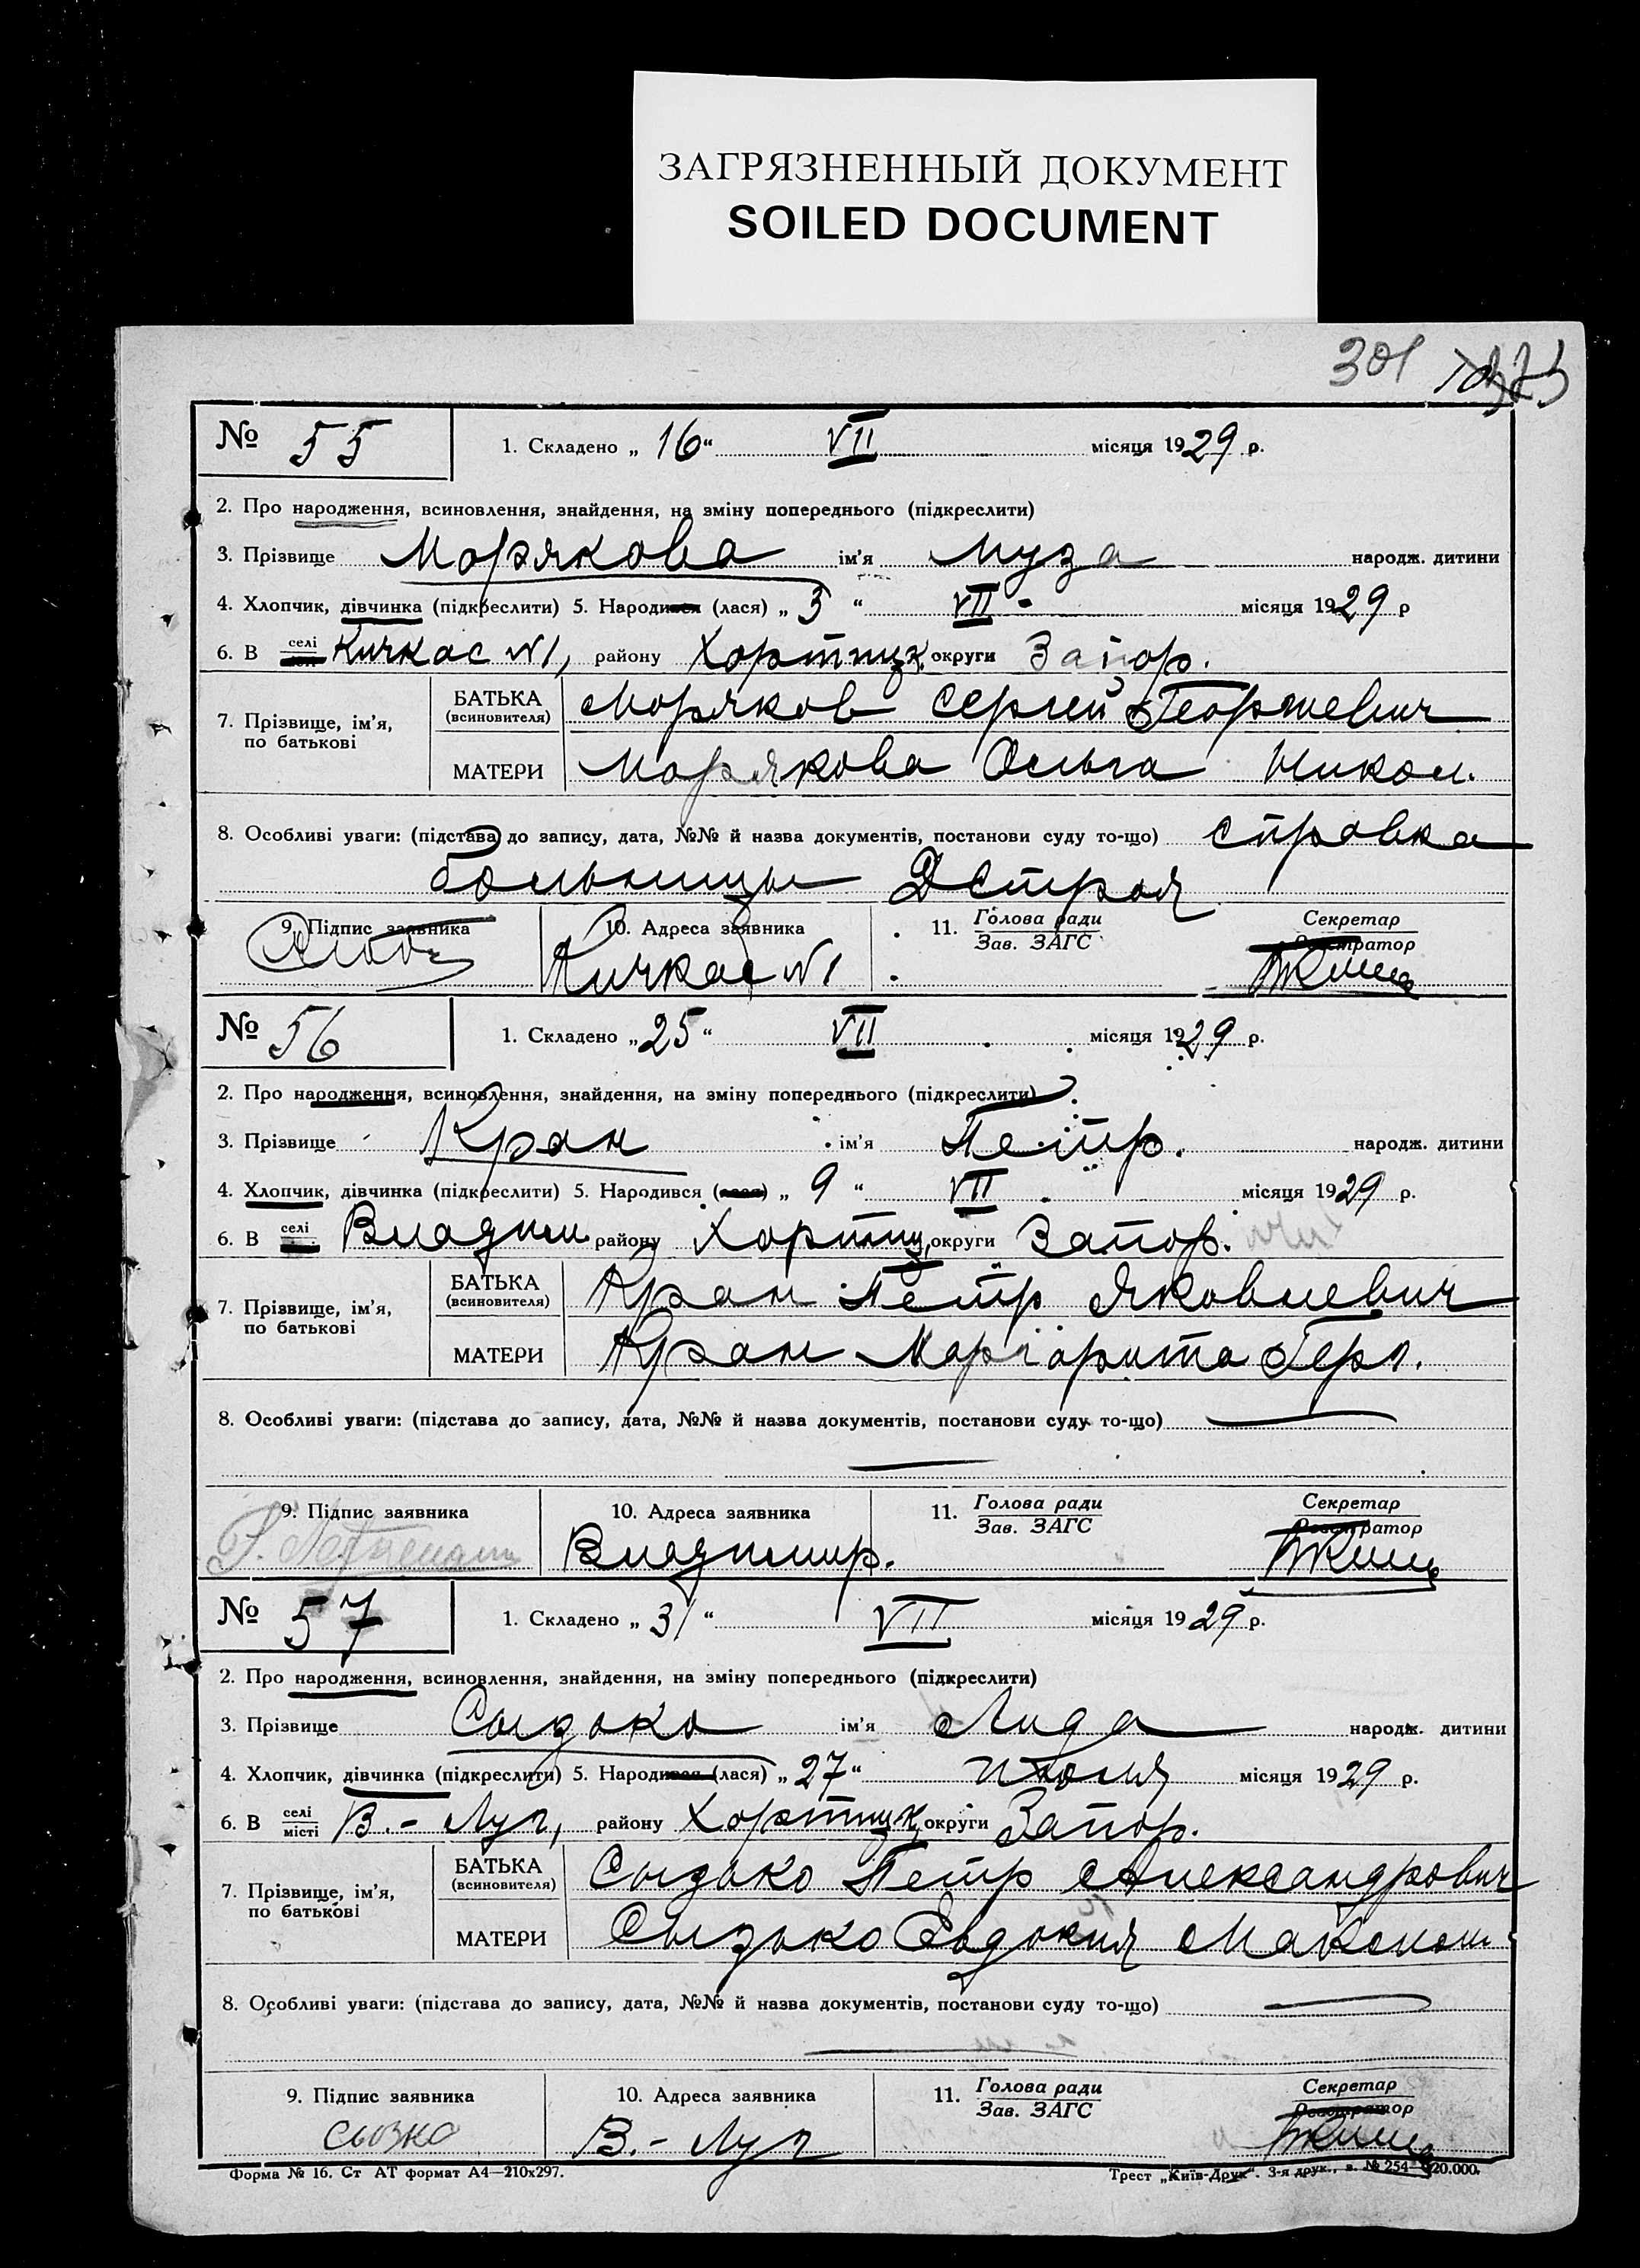 ЗАГРЯЗНЕННЫЙ ДОКУМЕНТ
SOILED DOCUMENT
301
№ 55 1. Складено „ 16 “ VII місяця 1929 р.
2. Про народження, всиновлення, знайдення, на зміну попереднього (підкреслити)
3. Прізвище Морякова ім’я Муза народж. дитини
4. Хлопчик, дівчинка (підкреслити) 5. Народився (лася) „ 3 “ VII місяця 1929 р
6. В селі Кичкас №1, району Хортицк. округи Запор.
7. Прізвище, ім’я, по батькові
БАТЬКА (всиновителя) Моряков Сергей Георгиевич
МАТЕРИ Морякова Ольга Никол.
8. Особливі уваги: (підстава до запису, дата, №№ й назва документів, постанови суду то-що) справка
больницы ДСтроя
9. Підпис заявника 10. Адреса заявника 11. Голова ради Секретар
Зав. ЗАГС Реєстратор
Кичкас №1
№ 56 1. Складено „ 25 “ VII місяця 1929 р.
2. Про народження, всиновлення, знайдення, на зміну попереднього (підкреслити)
3. Прізвище Кран ім’я Петр. народж. дитини
4. Хлопчик, дівчинка (підкреслити) 5. Народився (лася) „ 9 “ VII місяця 1929 р.
6. В селі Владим. району Хортиц. округи Запор.
7. Прізвище, ім’я, по батькові
БАТЬКА (всиновителя) Кран Петр Яковлевич
МАТЕРИ Кран Маргарита Герг.
8. Особливі уваги: (підстава до запису, дата, №№ й назва документів, постанови суду то-що)
9. Підпис заявника 10. Адреса заявника 11. Голова ради Секретар
Зав. ЗАГС Реєстратор
Владимир.
№ 57 1. Складено „ 31 “ VII місяця 1929 р.
2. Про народження, всиновлення, знайдення, на зміну попереднього (підкреслити)
3. Прізвище Сызько ім’я Лида народж. дитини
4. Хлопчик, дівчинка (підкреслити) 5. Народився (лася) „ 27 “ Июля місяця 1929 р.
6. В селі місті В.-Луг, району Хортицк. округи Запор.
7. Прізвище, ім’я, по батькові
БАТЬКА (всиновителя) Сызько Петр Александрович
МАТЕРИ Сызько Евдокия Максим.
8. Особливі уваги: (підстава до запису, дата, №№ й назва документів, постанови суду то-що)
9. Підпис заявника 10. Адреса заявника 11. Голова ради Секретар
Зав. ЗАГС Реєстратор
Сызко В.-Луг
Форма № 16. Ст АТ формат А4—210х297. Трест „Київ-Друк“. 3-я друк., з. № 254 20.000.